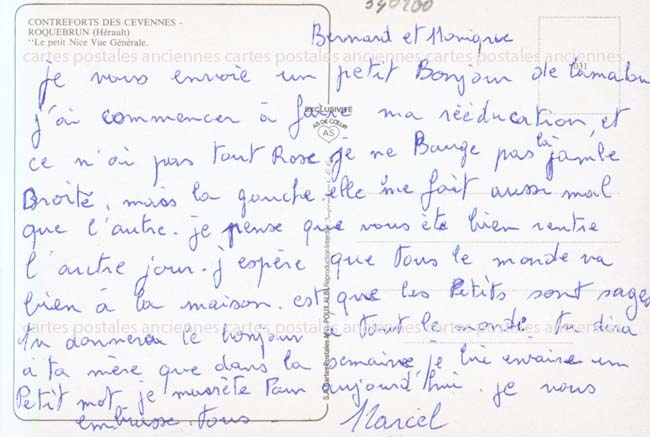 340200
CONTREFORTS DES CEVENNES -
ROQUEBRUN (Hérault)
"Le petit Nice Vue Générale.
1031
Bernard et Monique
cartes postales anciennes cartes postales anciennes cartes postales anciennes
je vous envoie un petit Bonjour de Lamalou
j'ai commencer à faire ma rééducation, et
ce n'ai pas tout Rose je ne Bouge pas la jambe
Droite, mais la gauche. elle me fait aussi mal
que l'autre. je pense que vous été bien rentre
l'autre jour. j'espère que tous le monde va
bien à la maison. est que les Petits sont sages
tu donnera le bonjour a tout le monde. Tu dira
cartes postales anciennes cartes postales anciennes cartes postales anciennes
à ta mère que dans la semaine je lui envaire un
Petit mot. je m'arrète Pour aujourd'hui. je vous
embrasse. tous - Marcel
EXCLUSIVITÉ
AS DE CŒUR
AS
Reproduction Interdite